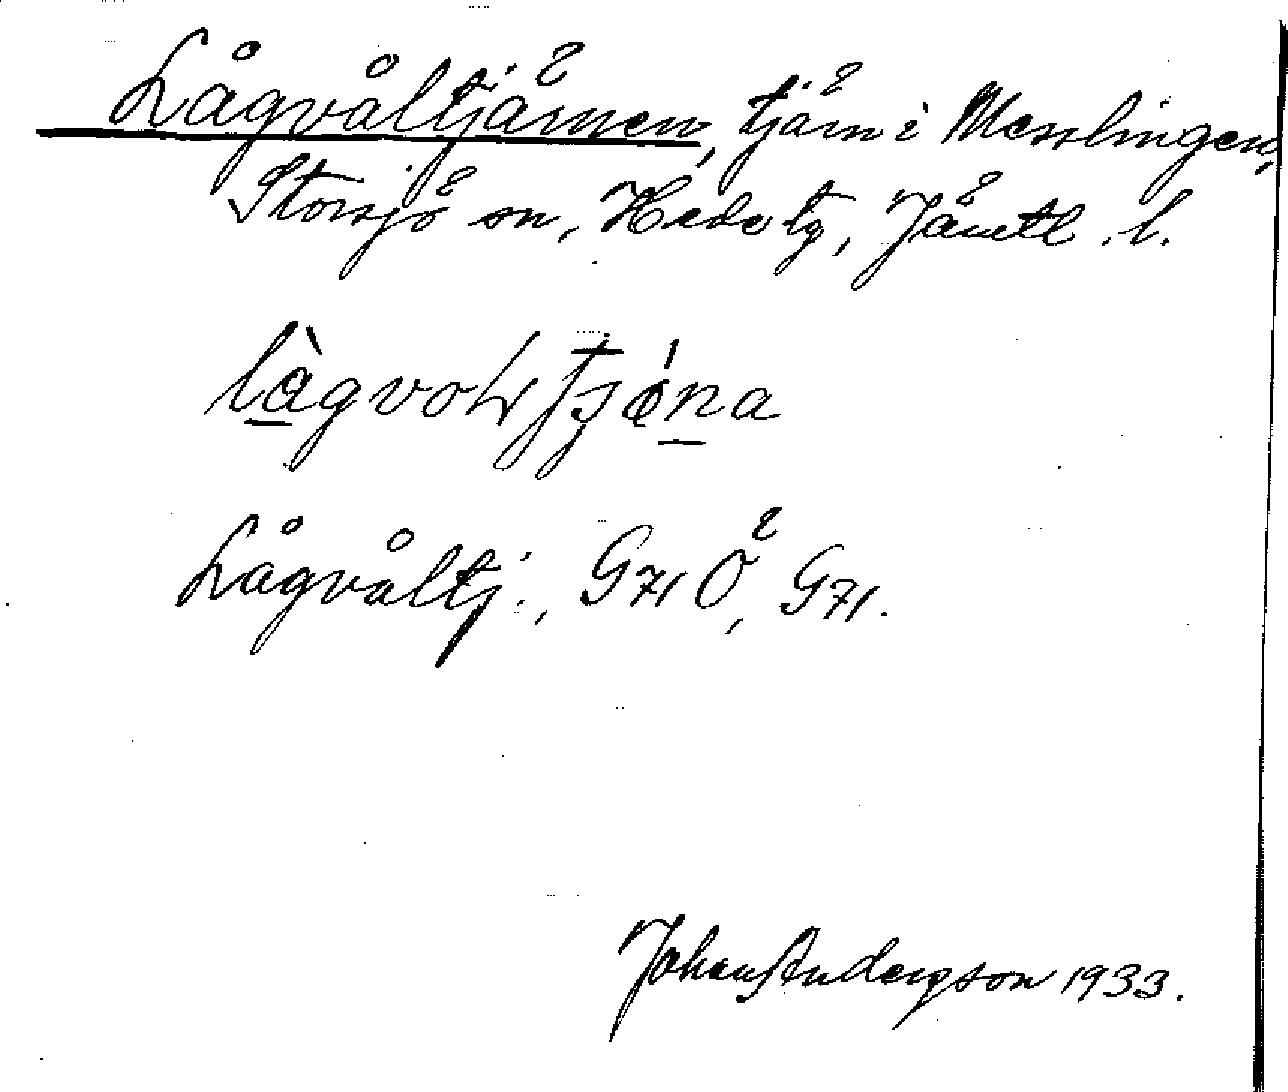 Lågvåltjärnen, tjärn i Messlingen,
Storsjö sn, Hede tg, Jämtl. l.
Lågvåltj., G71 Ö, G71.
Johan Anderson 1933.